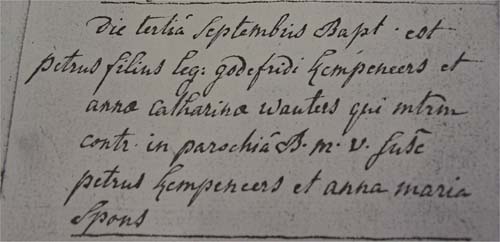 Die tertiâ Septembris Bapt. est
petrus filius leg: godefridi kempeneers et
annæ catharinæ wauters qui mtrm
contr. in parochiâ B. m. v. Susc̄
petrus kempeneers et anna maria
Spons